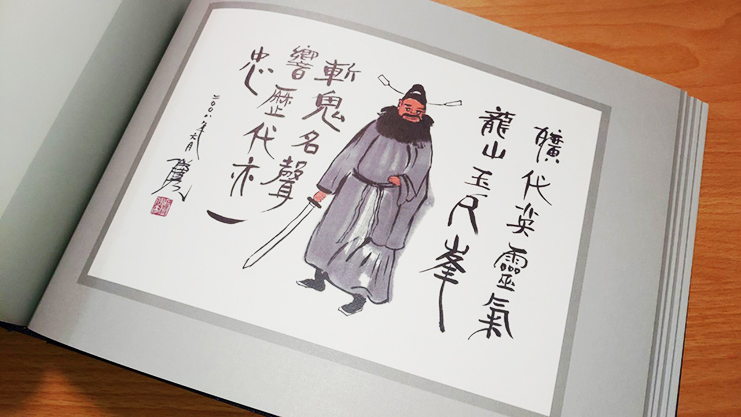 曠代英靈氣
龍山玉尺峯
斬鬼名聲
響歷代亦一
忠
二〇〇八年六月